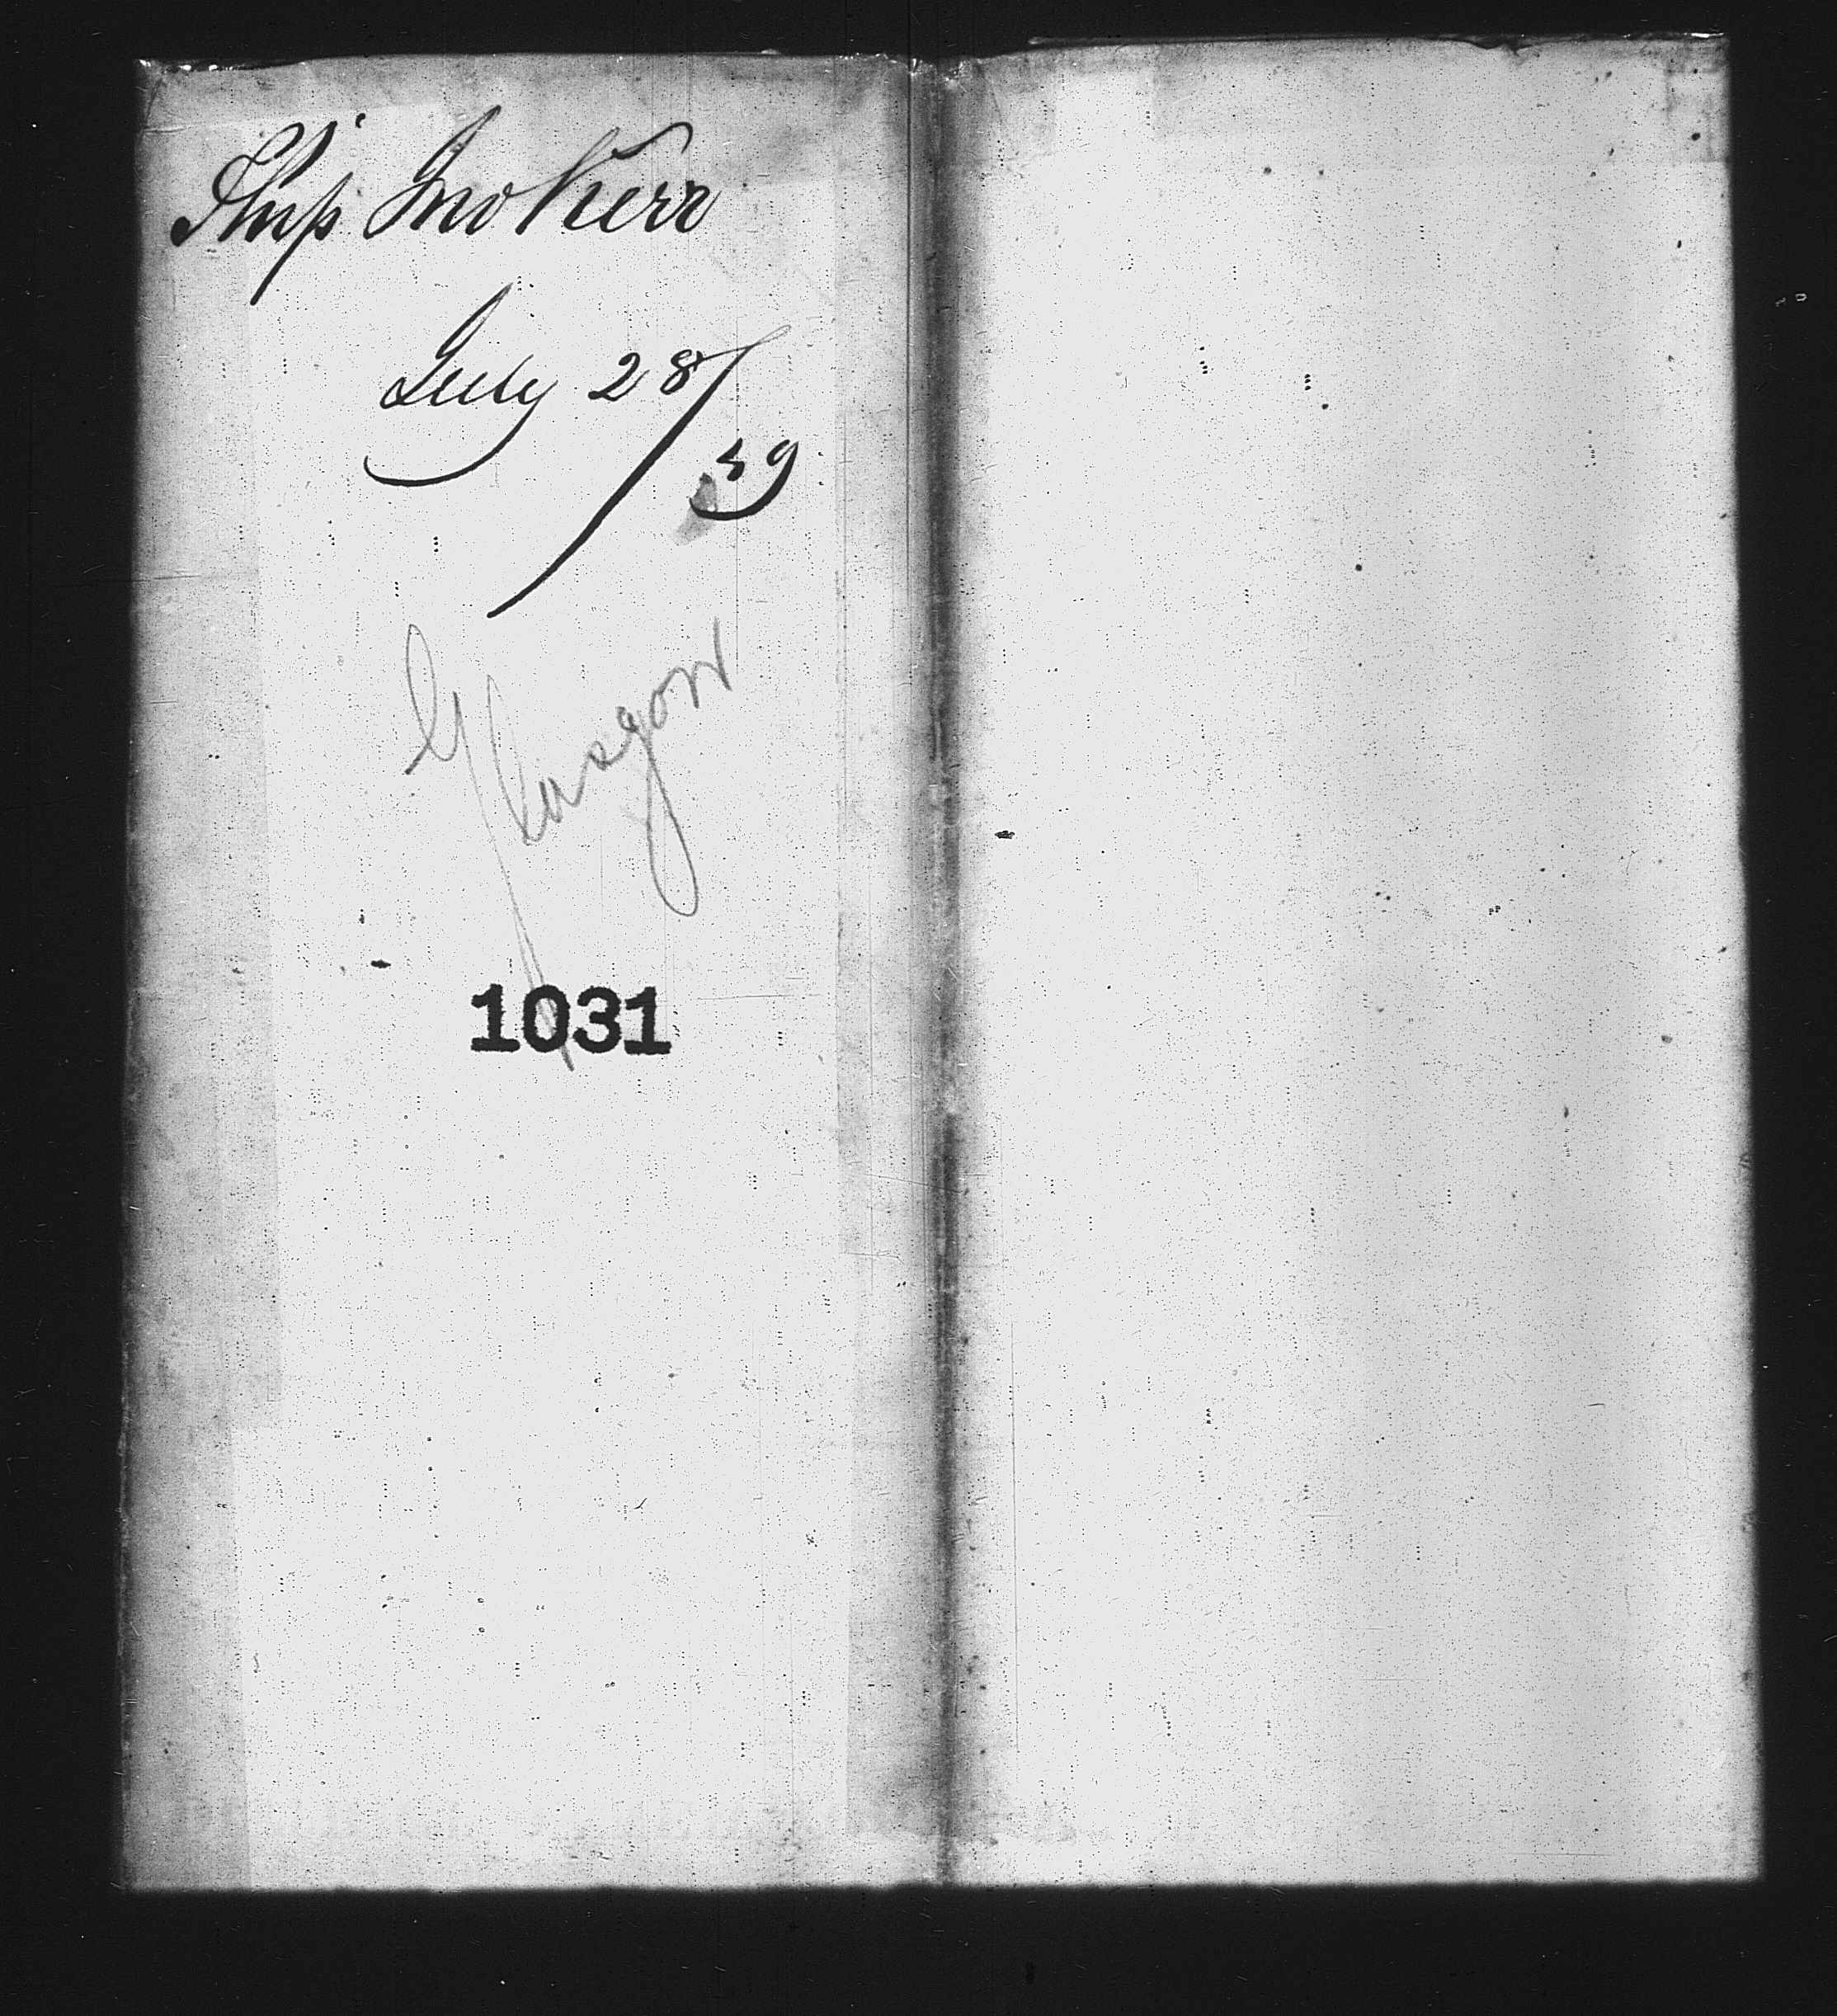 Ship Jno Kerr
July 28/
59
Glasgow
1031